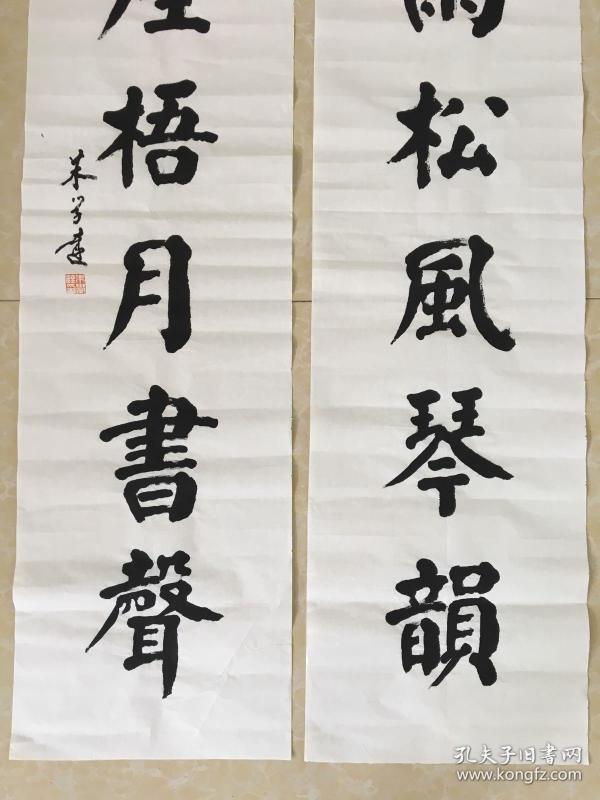 松風琴韻
梧月書聲
朱学達
孔夫子旧書网
www.kongfz.com